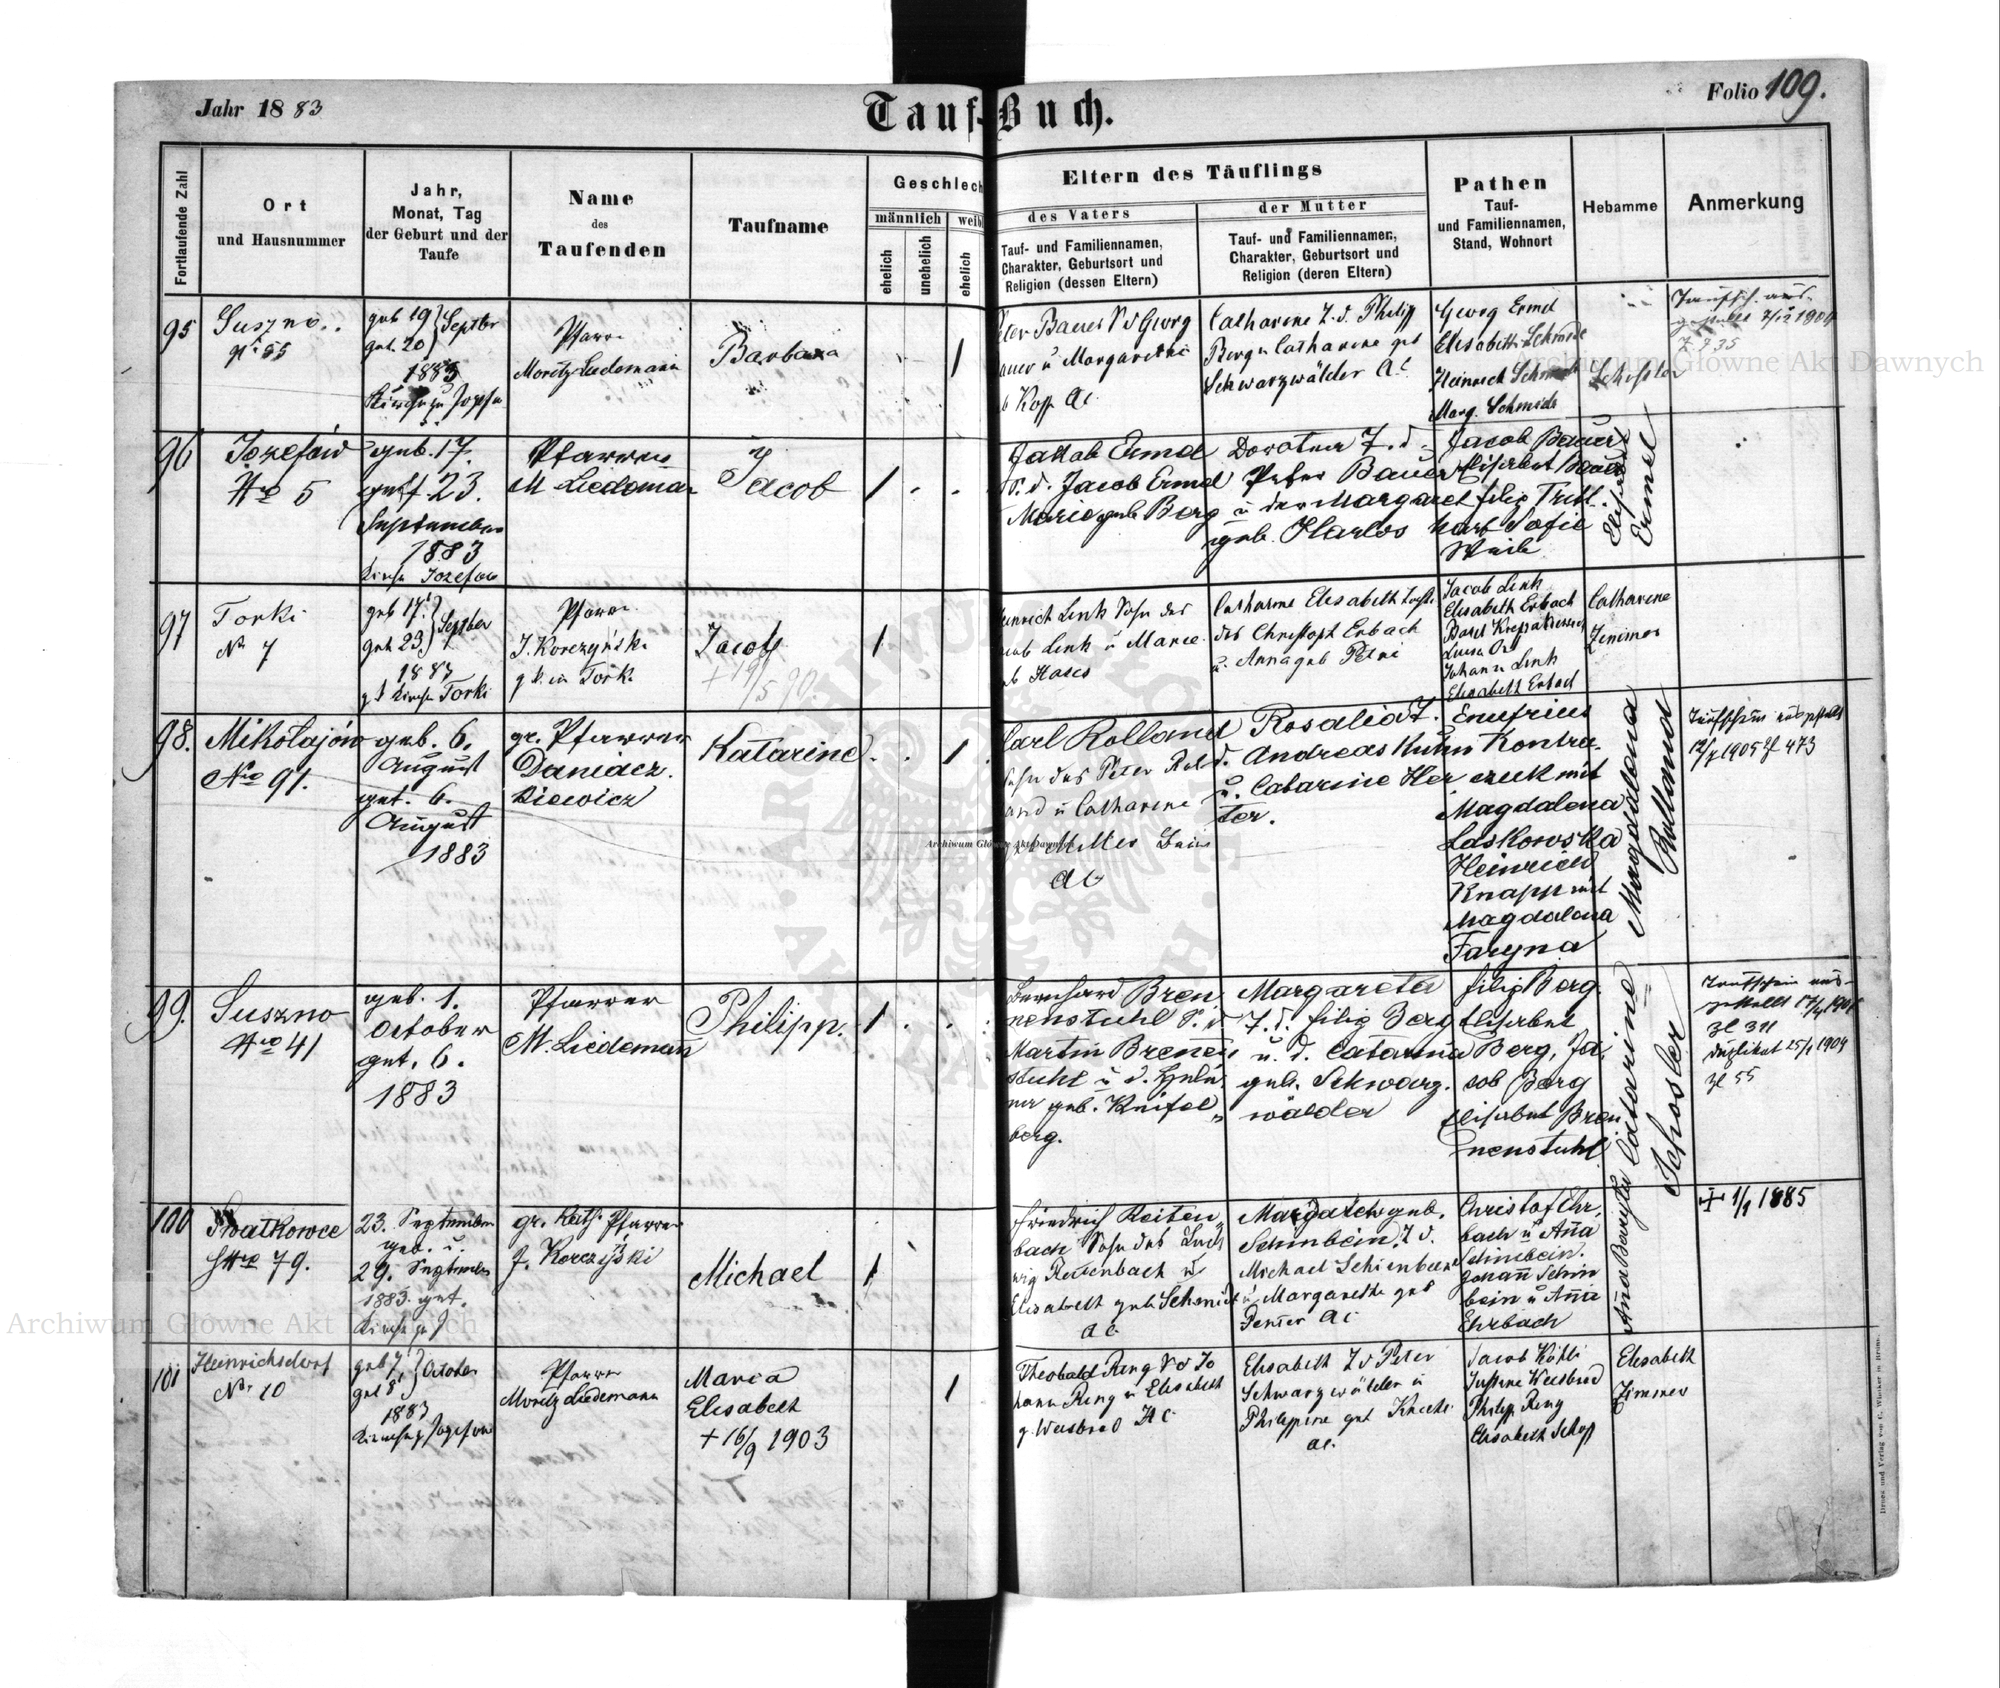 Jahr 1883
Tauf-Buch.
Folio 109.
Fortlaufende Zahl
Ort
und Hausnummer
Jahr,
Monat, Tag
der Geburt und der
Taufe
Name
des
Taufenden
Taufname
Geschlech
männlich
weib
ehelich
unehelich
ehelich
Eltern des Täuflings
des Vaters
Tauf- und Familiennamen,
Charakter, Geburtsort und
Religion (dessen Eltern)
der Mutter
Tauf- und Familiennamen,
Charakter, Geburtsort und
Religion (deren Eltern)
Pathen
Tauf-
und Familiennamen,
Stand, Wohnort
Hebamme
Anmerkung
95
Suszno
No 55
geb 19
get. 20
Septber
1883
Pfarrer
Moritz Liedemann
Barbara
1
Bauer S d Georg
auer u Margarethe
b Kopp AC
Catharine T. d. Philipp
Berg u Catharine geb
Schwarzwälder AC
Georg Ermel
Elisabeth Schmidt
Heinrich Schmidt
Marg. Schmidt
Schessler
96
Jozefów
Nro 5
geb. 17.
get. 23.
September
1883
Kirche Jozefow
Pfarrer
M Liedeman
Jacob
1
Jakob Ermel
S. d. Jacob Ermel
Marie geb Berg
Dorotea T. d.
Peter Bauer
u der Margaret
geb. Harlos
Jacob Bauer
Elisabet Bauer
Filip Tritt-
hart Sofie
Weib
Elisabet
Ermel
97
Torki
No 7
geb 17.
get. 23
Septber
1883
g k Kirche Torki
Pfarrer
J. Korczyński
g k. in Torki
Jacob
+ 19/5 90.
1
einrich Link Sohn des
acob Link u Marie
eb Haas
Catharine Elisabeth Tocht
des Christoph Erbach
u. Anna geb Petri
Jacob Link
Elisabeth Erbach
Johann Link
Elisabeth Erbach
Catharine
Zimmer
98.
Mikołajów
Nro 91.
geb. 6.
August
get. 6.
August
1883
gr. Pfarrer
Daniacz.
kiewicz
Katarine
1
Carl Rolland
Sohn des Peter Rol
and u Catharine
geb Miller
AC
Rosalia T.
d. Andreas Kuhn
u. Catarine Her
ter.
Enufrius
Kontra-
czuk mit
Magdalena
Laskowska
Heinrich
Knapp mit
Magdalena
Faryna
Magdalena
Rolland
Taufschein ausgestellt
12/7 1905 Zl 473
99.
Suszno
Nro 41
geb. 1.
October
get. 6.
1883
Pfarrer
M. Liedemann
Philipp.
1
Bernhard Bren
nenstuhl S. d
Martin Brenen
stuhl u d. Hele
ner geb. Kneifel
berg.
Margareta
T. d. Filip Berg
u. d. Catarina
geb. Schwarz.
wälder
Filip Berg.
Elisabet
Berg, Ja
cob Berg
Elisabet Bren
nenstuhl
Catarine
Schosler
Taufschein aus-
gestellt 17/4 1901
Zl 311
Duplikat 25/1 1904
Zl 55
100
Swatkowce
Nro 79.
23. September
geb. u.
29. September
1883. get.
gr. kath. Pfarrer
J. Korczyński
Michael
1
Friedrich Reiten
bach Sohn des Lud
wig Reitenbach u
Elisabeth geb Schmidt
AC
Margareth geb.
Schinbein, T d.
Michael Schienbein
u. Margarethe geb
AC
Christof Ehr
bach u Anna
Schinbein.
Johann Schin
bein u Anna
Ehrbach
+ 1/1 1885
101
Heinrichsdorf
No 10
geb 7
get 8
October
1883
Kirche zu Josefow
Pfarrer
Moritz Liedemann
Maria
Elisabeth
+ 16/9 1903
1
Theobald Ring S d Jo
hann Ring u Elisabeth
g. Weisbrod HC
Elisabeth T d Peter
Schwarzwälder u
Philippine geb Knecht
AC.
Jacob Köhli
Justine Weisbrod
Philipp Ring
Elisabeth Schop
Elisabeth
Zimmer
Druck und Verlag von C. Winiker in Brünn.
Archiwum Główne Akt Dawnych
Archiwum Główne Akt Dawnych
Archiwum Główne Akt Dawnych